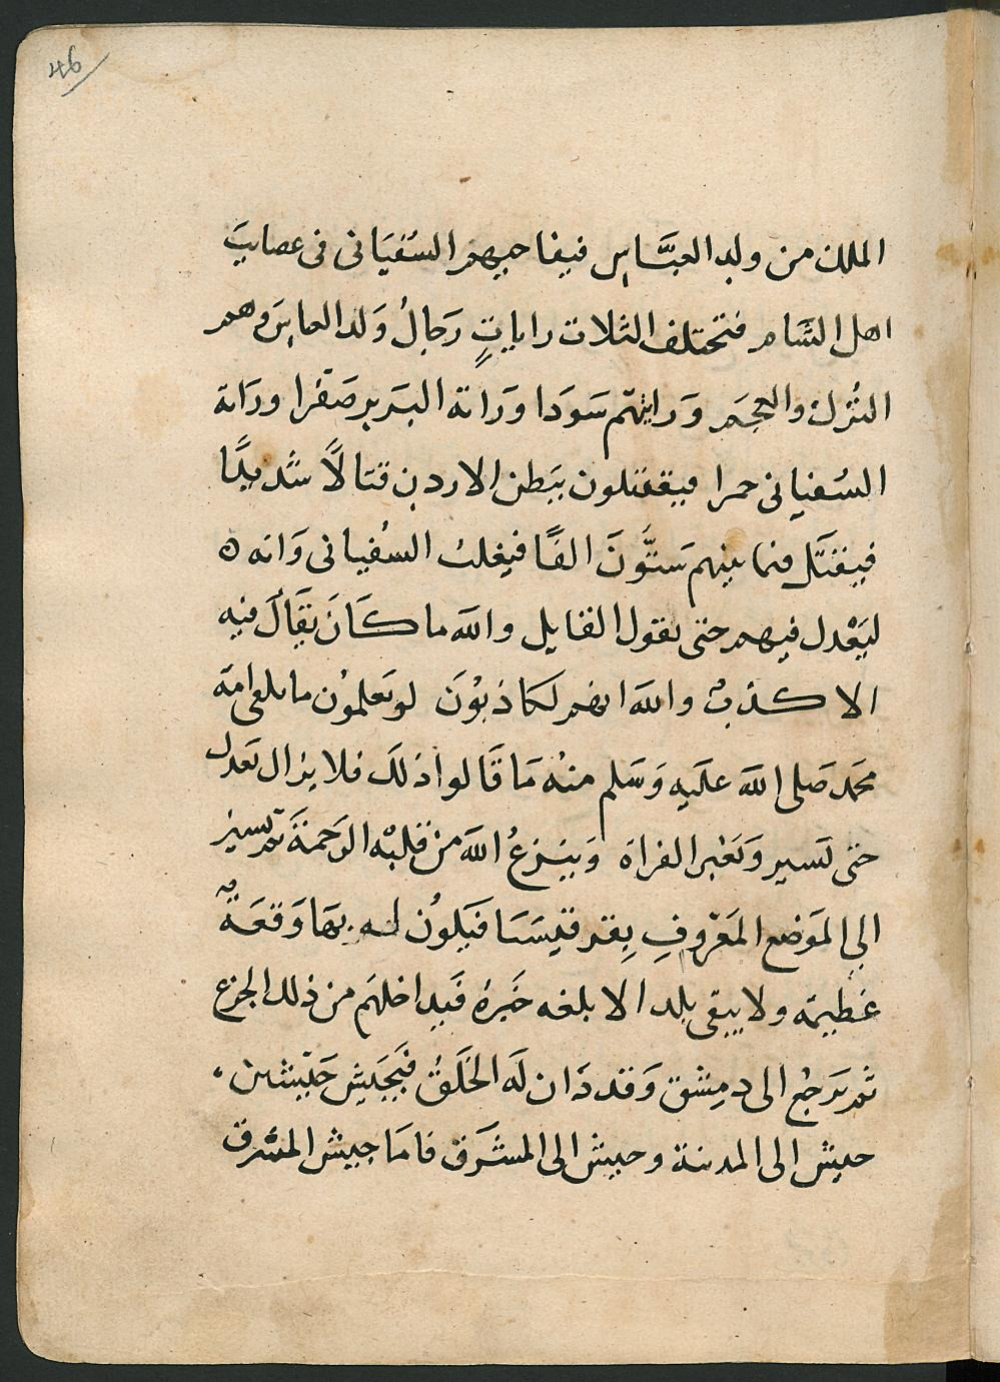 46
الملك من ولد العبَّاس فيفاجيهم السُفيَانى فى عصايبَ
اهل الشَام فتختلف الثلاث راياتٍ رَجالُ وَلد العباس وهم
التُرك والعجَم وَرايتهم سَودَا وَرَاية البَربر صَفرا ورَاية
السُفيانى حمرا فيقتتلون ببَطن الاردن قتالاً شديدًا
فيقتَل فيما بينهم سَتُّونَ الفًا فيغلبُ السُفيانى وَانه ه
ليَعْدل فيهم حتى يقول القايل والله ما كَانَ يقَالَ فيه
الا كذبٌ والله انهم لكاذبُوْنَ لو يَعلمُوْن ما يلقى امة
محمد صَلى الله علَيه وَسَلم منهُ مَا قَالوا ذلكَ فلا يزال يَعدل
حتى يَسير وَيَعْبر الفراة وَينزعُ الله من قلبْه الرَحمةَ ثم يسير
الى المَوضع المَعْروفِ بِقرقيسَيَا فيَكوُن له بهَا وَقعَةٌ
عَظيمَه ولا يبقى بلد الا بلغه خَبرهُ فيَداخلهَم من ذلك الجزع
ثم يَرجْع الى دمِشق وَقد دَان لَه الخَلقُ فيَجَيش جَيْشَين،
جيش الى المدينة وجيش الى المشرَق فامَا جيش المشرق